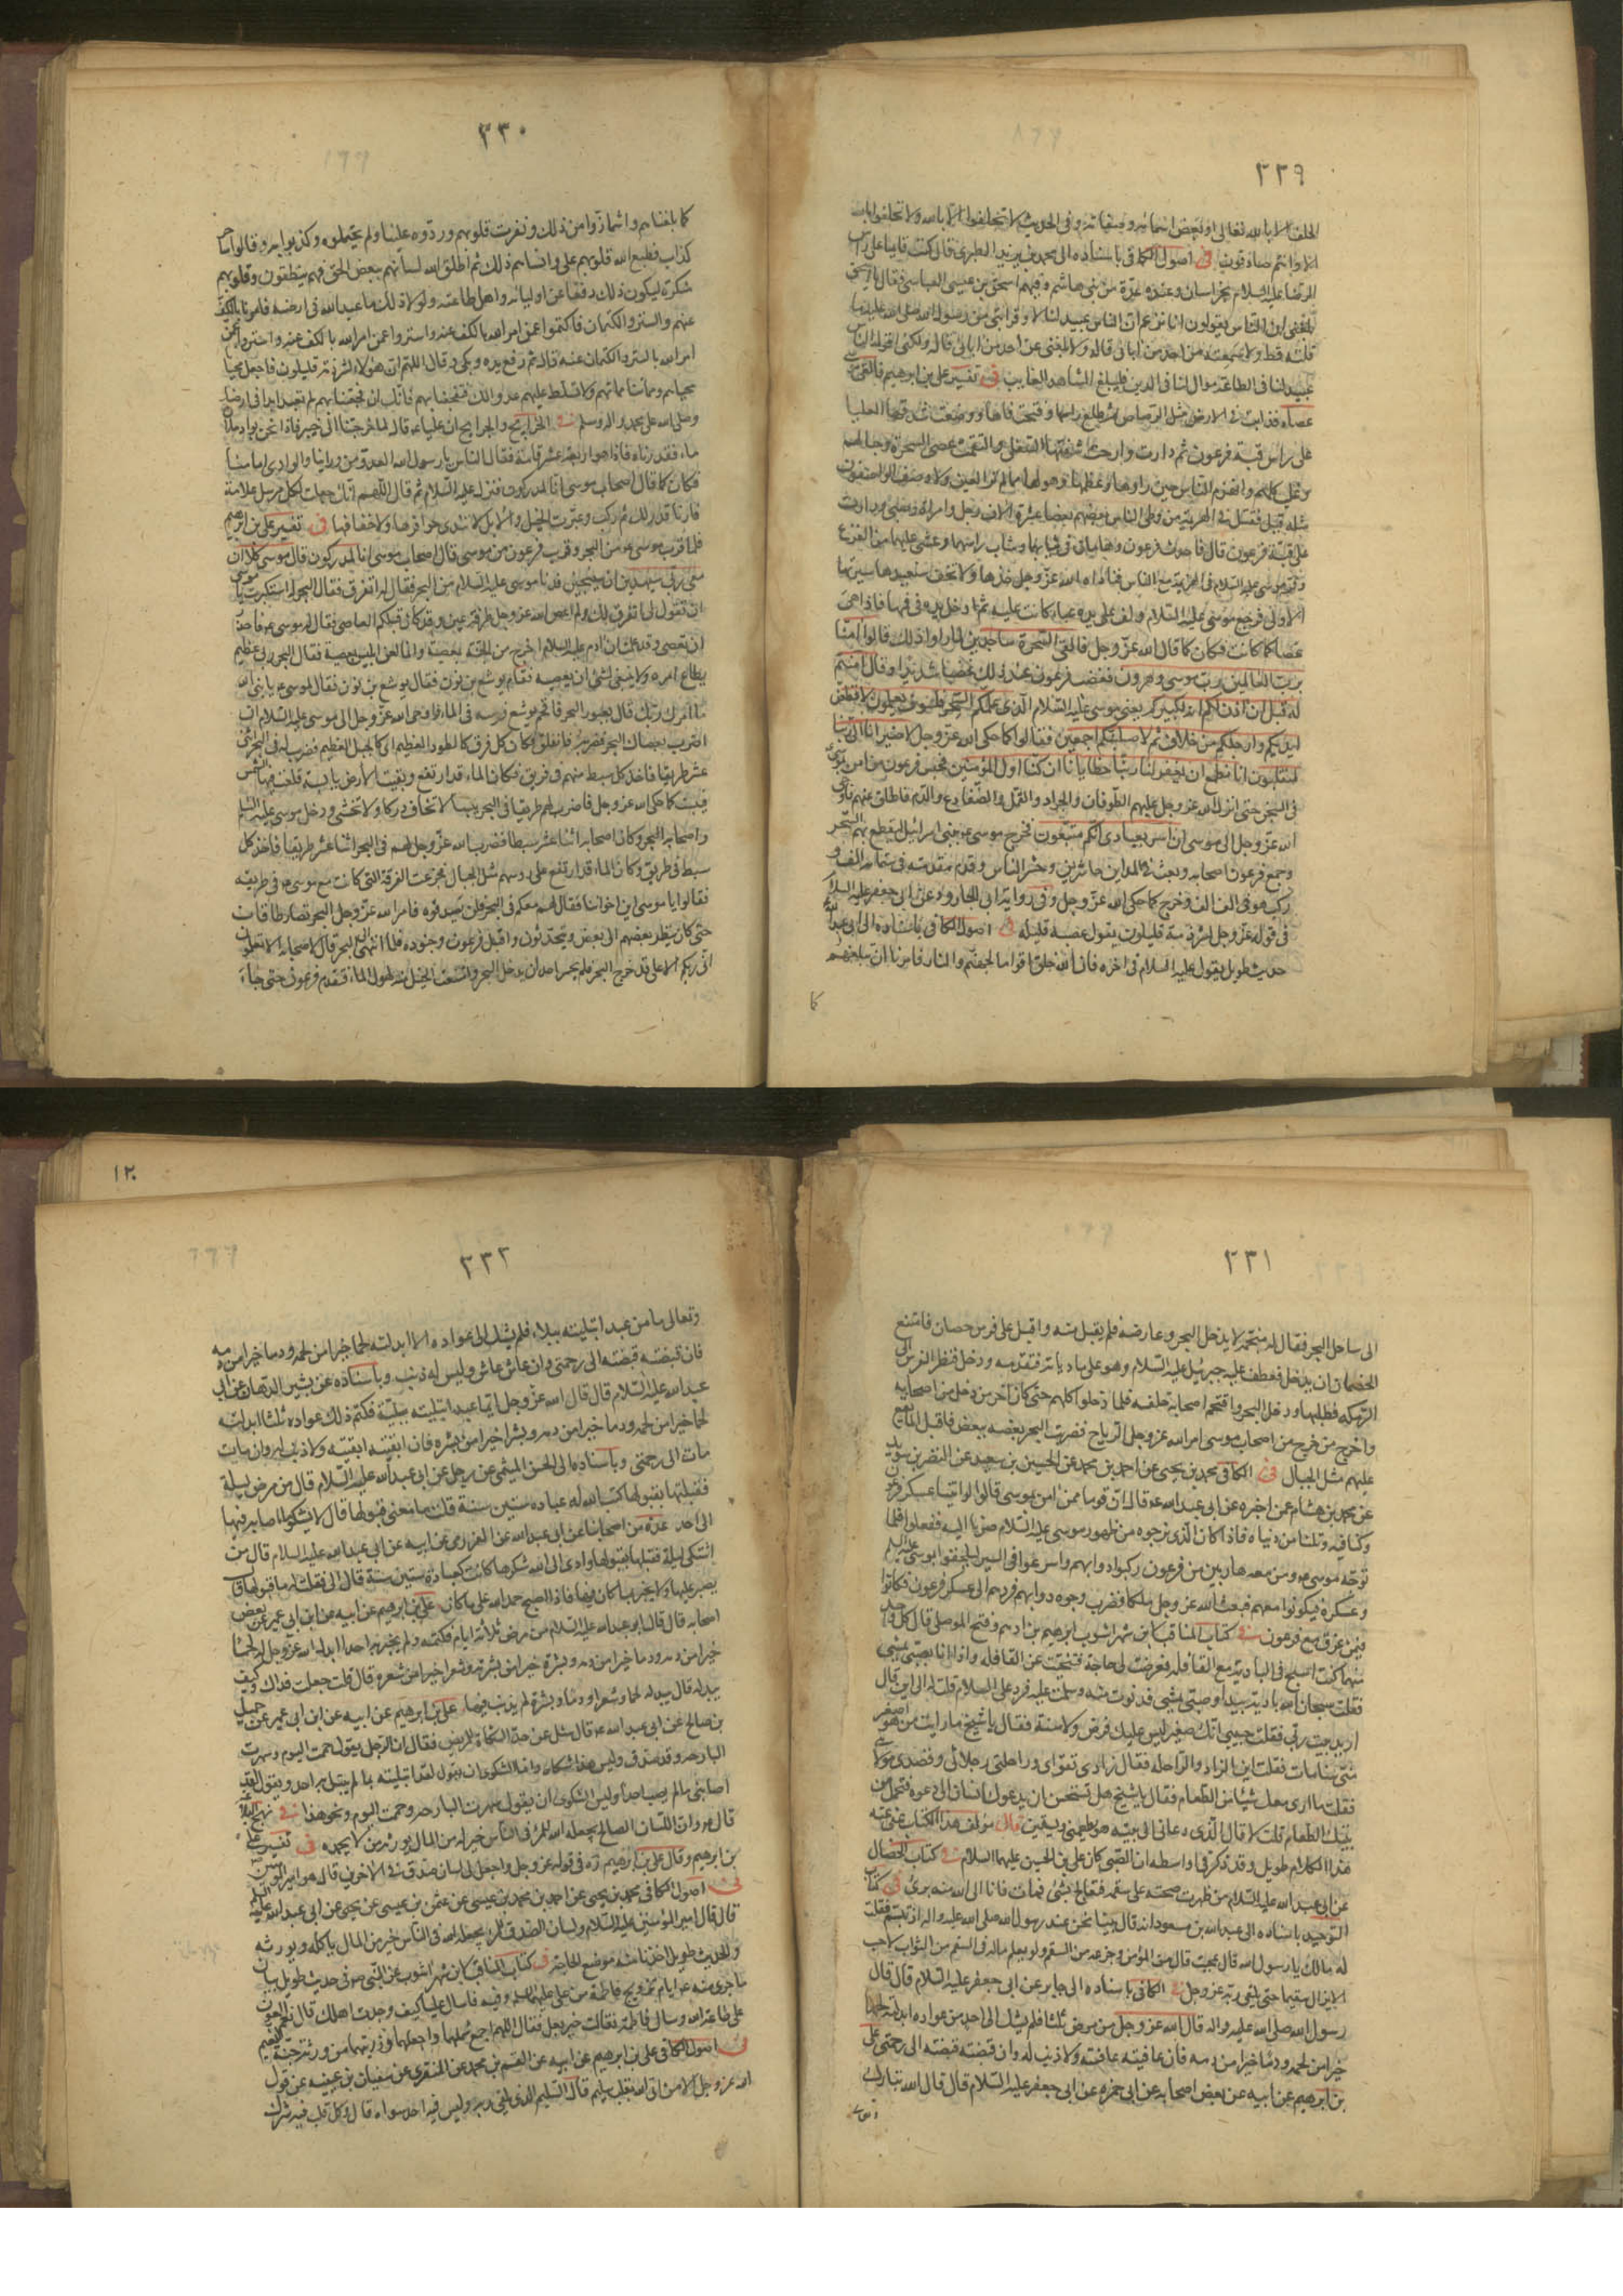 ٣٣٩
الحلف الا بالله تعالى او ببعض اسمائه وصفاته وفى الحديث لا تحلفوا الا بالله ولا تحلفوا بالله
الا وانتم صادقون فى اصول الكافى باسناده الى محمد بن زيد الطبرى قال كنت قايما على راس
الرضا عليه السلام بخراسان وعنده عدة من بنى هاشم وفيهم اسحق بن عيسى العباسى فقال يا اسحق
بلغنى ان الناس يقولون انا نزعم ان الناس عبيد لنا لا وقرابتى من رسول الله صلى الله عليه ما
قلته قط ولا سمعته من احد من ابائى قاله ولا بلغنى عن احد من ابائى قاله ولكنى اقول الناس
عبيد لنا فى الطاعة موال لنا فى الدين فليبلغ الشاهد الغايب فى تفسير على بن ابرهيم فالقى
عصاه فذابت فى الارض مثل الرصاص ثم طلع راسها وفتحت فاها ووضعت شدقها العليا
على راس قبة فرعون ثم دارت وارخت شفتها السفلى والتقمت عصى السحرة وحبالهم
وغلب كلهم وانهزم الناس حين راوها وعظمها وهولها مما لم تر العين ولا وصف الواصفون
مثله قبل فقتل فى الهزيمة من وطى الناس بعضهم بعضا عشرة الاف رجل وامراة وصبى ودارت
على قبة فرعون قال فاحدث فرعون وهامان فى ثيابهما وشاب راسهما وغشى عليهما من الفزع
ومر موسى عليه السلام فى الهزيمة مع الناس فناداه الله عز وجل خذها ولا تخف سنعيدها سيرتها
الاولى فرجع موسى عليه السلام ولف على يده عباء كانت عليه ثم ادخل يده فى فمها فاذا هى
عصا كما كانت فكان كما قال الله عز وجل فالقى السحرة ساجدين لما راوا ذلك قالوا امنا
برب العالمين رب موسى وهرون فغضب فرعون عند ذلك غضبا شديدا وقال امنتم
له قبل ان اذن لكم انه لكبيركم يعنى موسى عليه السلام الذى علمكم السحر فلسوف تعلمون لاقطعن
ايديكم وارجلكم من خلاف ثم لاصلبنكم اجمعين فقالوا كما حكى الله عز وجل لا ضير انا الى ربنا
لمنقلبون انا نطمع ان يغفر لنا ربنا خطايانا ان كنا اول المؤمنين فحبس فرعون من امن بموسى
فى السجن حتى انزل الله عز وجل عليهم الطوفان والجراد والقمل والضفادع والدم فاطلق عنهم فاوحى
الله عز وجل الى موسى ان اسر بعبادى انكم متبعون فخرج موسى ببنى اسرائيل ليقطع بهم البحر
وجمع فرعون اصحابه وبعث فى المداين حاشرين وحشر الناس وقدم مقدمته فى ستمائة الف و
ركب هو فى الف الف وخرج كما حكى الله عز وجل وفى رواية ابى الجارود عن ابى جعفر عليه السلام
فى قوله عز وجل لشرذمة قليلون يقول عصبة قليلة فى اصول الكافى باسناده الى ابى عبد الله
حديث طويل يقول عليه السلام فى اخره فان الله خلق اقواما لجهنم والنار فامرنا ان نبلغهم
كما
٣٣٠
كما بلغناهم واشمازوا من ذلك ونفرت قلوبهم وردوه علينا ولم يحتملوه وكذبوا به وقالوا ساحر
كذاب فطبع الله على قلوبهم وانساهم ذلك ثم اطلق الله لسانهم ببعض الحق فهم ينطقون وقلوبهم
منكرة ليكون ذلك دفعا عن اوليائه واهل طاعته ولولا ذلك ما عبد الله فى ارضه فامرنا بالكف
عنهم والستر والكتمان فاكتموا عمن امر الله بالكف عنه واستروا عمن امر الله بالستر
امر الله بالستر والكتمان عنه قال ثم رفع يده وبكى وقال اللهم ان هؤلاء لشرذمة قليلون فاجعل محيانا
محياهم ومماتنا مماتهم ولا تسلط عليهم عدوا لك فتفجعنا بهم فانك ان فجعتنا بهم لم تعبد ابدا فى ارضك
وصلى الله على محمد واله وسلم فى الخرايج والجرايح ان عليا ع قال لما خرجنا الى خيبر فاذا نحن بواد ملآن
ماء فقدرناه فاذا هو اربعة عشر قامة فقال الناس يا رسول الله العدو من وراينا والوادى امامنا
فكان كما قال اصحاب موسى انا لمدركون فنزل عليه السلام ثم قال اللهم انك جعلت لكل مرسل علامة
فارنا قدرتك ثم ركب وعبرت الخيل والابل لا تندى حوافرها ولا اخفافها فى تفسير على بن ابرهيم
فلما قرب موسى من البحر وقرب فرعون من موسى قال اصحاب موسى انا لمدركون قال موسى كلا ان
معى ربى سيهدين اى سينجينى فدنا موسى عليه السلام من البحر فقال له انفرق فقال البحر له استكبرت يا موسى
ان تقول لى انفرق لك ولم اعص الله عز وجل طرفة عين وقد كان فيكم العاصى فقال له موسى ع فاحذر
ان تعصى وقد علمت ان ادم عليه السلام اخرج من الجنة بمعصية وانما لعن ابليس بمعصية فقال البحر ربى عظيم
مطاع امره ولا ينبغى لشئ ان يعصيه فقام يوشع بن نون فقال لموسى ع يا نبى الله
ما امرك ربك قال بعبور البحر فاقحم يوشع فرسه فى الماء فاوحى الله عز وجل الى موسى عليه السلام ان
اضرب بعصاك البحر فضربه فانفلق فكان كل فرق كالطود العظيم اى كالجبل العظيم فضرب له فى البحر اثنى
عشر طريقا فاخذ كل سبط منهم فى فريق فكان الماء قد ارتفع وبقيت الارض يابسة طلعت فيها الشمس
فيبست كما حكى الله عز وجل فاضرب لهم طريقا فى البحر يبسا لا تخاف دركا ولا تخشى ودخل موسى عليه السلم
واصحابه البحر وكان اصحابه اثنا عشر سبطا فضرب الله عز وجل لهم فى البحر اثنا عشر طريقا فاخذ كل
سبط فى طريق وكان الماء قد ارتفع على رؤسهم مثل الجبال فجزعت الفرقة التى كانت مع موسى ع فى طريقه
فقالوا يا موسى اين اخواننا فقال لهم معكم فى البحر فلن يصدقوه فامر الله عز وجل البحر فصار طاقات
حتى كان ينظر بعضهم الى بعض ويتحدثون واقبل فرعون وجنوده فلما انتهى الى البحر قال لاصحابه الا تعلمون
انى ربكم الاعلى قد فرج البحر فلم يجسر احد ان يدخل البحر وامتنعت الخيل منه لهول الماء فتقدم فرعون حتى جاء
٣٣١
الى ساحل البحر فقال له منجمه لا يدخل البحر وعارضه فلم يقبل منه واقبل على فرس حصان فامتنع
الحصان ان يدخل فعطف عليه جبرئيل عليه السلام وهو على ماديانة فتقدمه ودخل فنظر الفرس الى
الرمكة فطلبها ودخل البحر واقتحم اصحابه خلفه فلما دخلوا كلهم حتى كان اخر من دخل من اصحابه
واخرج من خرج من اصحاب موسى امر الله عز وجل الرياح فضربت البحر بعضه ببعض فاقبل الماء يقع
عليهم مثل الجبال فى الكافى محمد بن يحيى عن احمد بن محمد عن الحسين بن سعيد عن النضر بن سويد
عن محمد بن هشام عن اخبره عن ابى عبد الله ع قال ان قوما ممن امن بموسى قالوا لو اتينا عسكر فرعون
وكنا فيه ونلنا من دنياه فاذا كان الذى نرجوه من ظهور موسى عليه السلام صرنا اليه ففعلوا فلما
توجه موسى ع ومن معه هاربين من فرعون ركبوا دوابهم واسرعوا فى السير ليلحقوا بموسى عليه السلم
وعسكره فيكونوا معهم فبعث الله عز وجل ملكا فضرب وجوه دوابهم فردهم الى عسكر فرعون فكانوا
فيمن غرق مع فرعون فى كتاب المناقب لابن شهر اشوب ابرهيم بن ادهم وفتح الموصلى قال كل واحد
منهما كنت اسيح فى البادية مع القافلة فعرضت لى حاجة فتنحيت عن القافلة واذا انا بصبى يمشى
فقلت سبحان الله بادية بيداء وصبى يمشى فدنوت منه وسلمت عليه فرد على السلام فقلت له الى اين قال
اريد بيت ربى فقلت حبيبى انك صغير ليس عليك فرض ولا سنة فقال يا شيخ ما رايت من هو اصغر
منى سنا مات فقلت اين الزاد والراحلة فقال زادى تقواى وراحلتى رجلاى وقصدى مولاى
فقلت ما ارى معك شيئا من الطعام فقال يا شيخ هل تستحسن ان يدعوك انسان الى دعوة فتحمل من
بيتك الطعام قلت لا قال الذى دعانى الى بيته هو يطعمنى ويسقين قال مؤلف هذا الكتاب عفى عنه
هذا الكلام طويل وقد ذكر فى اواسطه ان الصبى كان على بن الحسين عليهما السلام فى كتاب الخصال
عن ابى عبد الله عليه السلام من ظهرت صحته على سقمه فتعالج بشئ فمات فانا الى الله منه برئ فى كتاب
التوحيد باسناده الى عبد الله بن مسعود انه قال بينا نحن عند رسول الله صلى الله عليه واله اذ تبسم فقلت
له مالك يا رسول الله قال عجبت من المؤمن وجزعه من السقم ولو يعلم ماله فى السقم من الثواب لاحب
الا يزال سقيما حتى يلقى ربه عز وجل فى الكافى باسناده الى جابر عن ابى جعفر عليه السلام قال قال
رسول الله صلى الله عليه واله قال الله عز وجل من مرض ثلثا فلم يشك الى احد من عواده ابدلته لحما
خيرا من لحمه ودما خيرا من دمه فان عافيته عافيته ولا ذنب له وان قبضته قبضته الى رحمتى على
بن ابرهيم عن ابيه عن بعض اصحابه عن ابى حمزه عن ابى جعفر عليه السلام قال قال الله تبارك
١٢٠
٣٣٢
وتعالى ما من عبد ابتليته ببلاء فلم يشك الى عواده الا ابدلته لحما خيرا من لحمه ودما خيرا من دمه
فان قبضته قبضته الى رحمتى وان عاش عاش وليس له ذنب وباسناده عن بشير الدهان عن ابى
عبد الله عليه السلام قال قال الله عز وجل ايما عبد ابتليته ببلية فكتم ذلك عواده ثلثا ابدلته
لحما خيرا من لحمه ودما خيرا من دمه وبشرا خيرا من بشره فان ابقيته ابقيته ولا ذنب له وان مات
مات الى رحمتى وباسناده الى الحسن الميثمى عن رجل عن ابى عبد الله عليه السلام قال من مرض ليلة
فقبلها بقبولها كتب الله له عبادة ستين سنة قلت ما معنى قبولها قال لا يشكو ما اصابه فيها
الى احد عدة من اصحابنا عن ابى عبد الله عن العزرمى عن ابيه عن ابى عبد الله عليه السلام قال من
اشتكى ليلة فقبلها بقبولها وادى الى الله شكرها كانت كعبادة ستين سنة قال ابى فقلت له ما قبولها قال
يصبر عليها ولا يخبر بما كان فيها فاذا اصبح حمد الله على ما كان على بن ابرهيم عن ابيه عن ابن ابى عمير عن بعض
اصحابه قال قال ابو عبد الله عليه السلام من مرض ثلاثة ايام فكتمه ولم يخبر به احدا ابدل الله عز وجل له لحما
خيرا من لحمه ودما خيرا من دمه وبشرة خيرا من بشرته وشعرا خيرا من شعره قال قلت جعلت فداك وكيف
يبدله قال يبدله لحما وشعرا ودما وبشرة لم يذنب فيها على بن ابرهيم عن ابيه عن ابن ابى عمير عن جميل
بن صالح عن ابى عبد الله ع قال سئل عن حد الشكاة للمريض فقال ان الرجل يقول حممت اليوم وسهرت
البارحة وقد صدق وليس هذا شكاة وانما الشكوى ان يقول لقد ابتليت بما لم يبتل به احد ويقول لقد
اصابنى ما لم يصب احدا وليس الشكوى ان يقول سهرت البارحة وحممت اليوم ونحو هذا فى نهج البلاغة
قال ع وان اللسان الصالح يجعله الله للمرء فى الناس خير له من المال يورثه من لا يحمده فى تفسير على
بن ابرهيم وقال على بن ابرهيم ره فى قوله عز وجل واجعل لى لسان صدق فى الاخرين قال هو امير المؤمنين
فى اصول الكافى محمد بن يحيى عن احمد بن محمد بن عيسى عن عثمن بن عيسى عن يحيى عن ابى عبد الله عليه السلم
قال قال امير المؤمنين عليه السلام ولسان الصدق للمرء يجعله الله فى الناس خير من المال ياكله ويورثه
والحديث طويل اخذنا منه موضع الحاجة فى كتاب المناقب لابن شهر اشوب عن النبى ص فى حديث طويل بيان
ما جرى منه ع ايام تزويج فاطمة من على عليهما السلم وفيه فسال عليا كيف وجدت اهلك قال نعم العون
على طاعة الله وسال فاطمة فقالت خير بعل فقال اللهم اجمع شملهما واجعلهما وذريتهما من ورثة جنة النعيم
فى اصول الكافى على بن ابرهيم عن ابيه عن القسم بن محمد عن المنقرى عن سفيان بن عيينه عن قول
الله عز وجل الا من اتى الله بقلب سليم قال السليم الذى يلقى ربه وليس فيه احد سواه قال وكل قلب فيه شرك